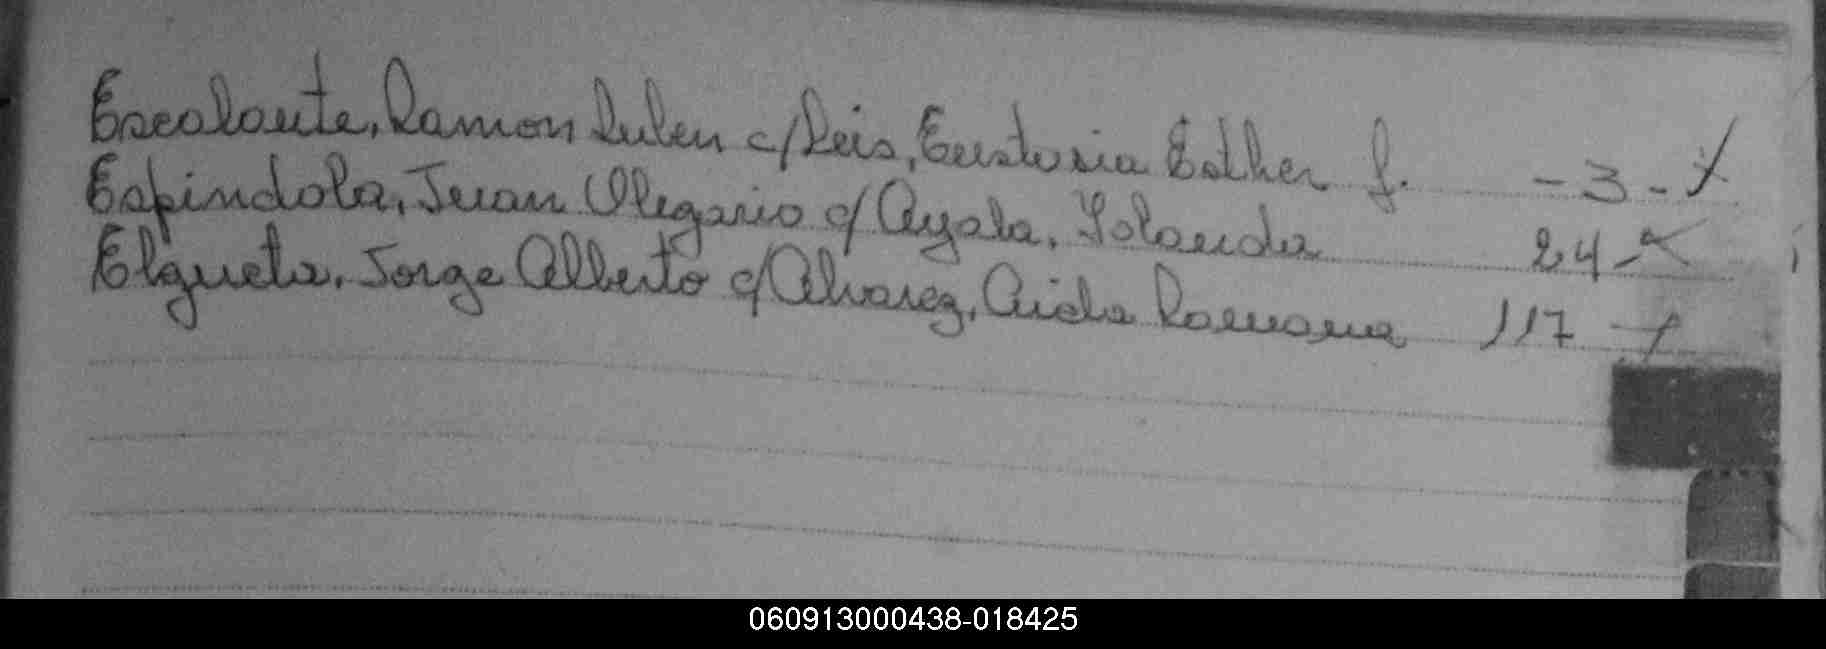 Escalante, Ramon Ruben c/ Reis, Eustasia Esther f. - 3 -
Espindola, Juan Olegario c/ Ayala, Yolanda 24 -
Elgueta, Jorge Alberto c/ Alvarez, Aida Ramona 117 -
060913000438-018425